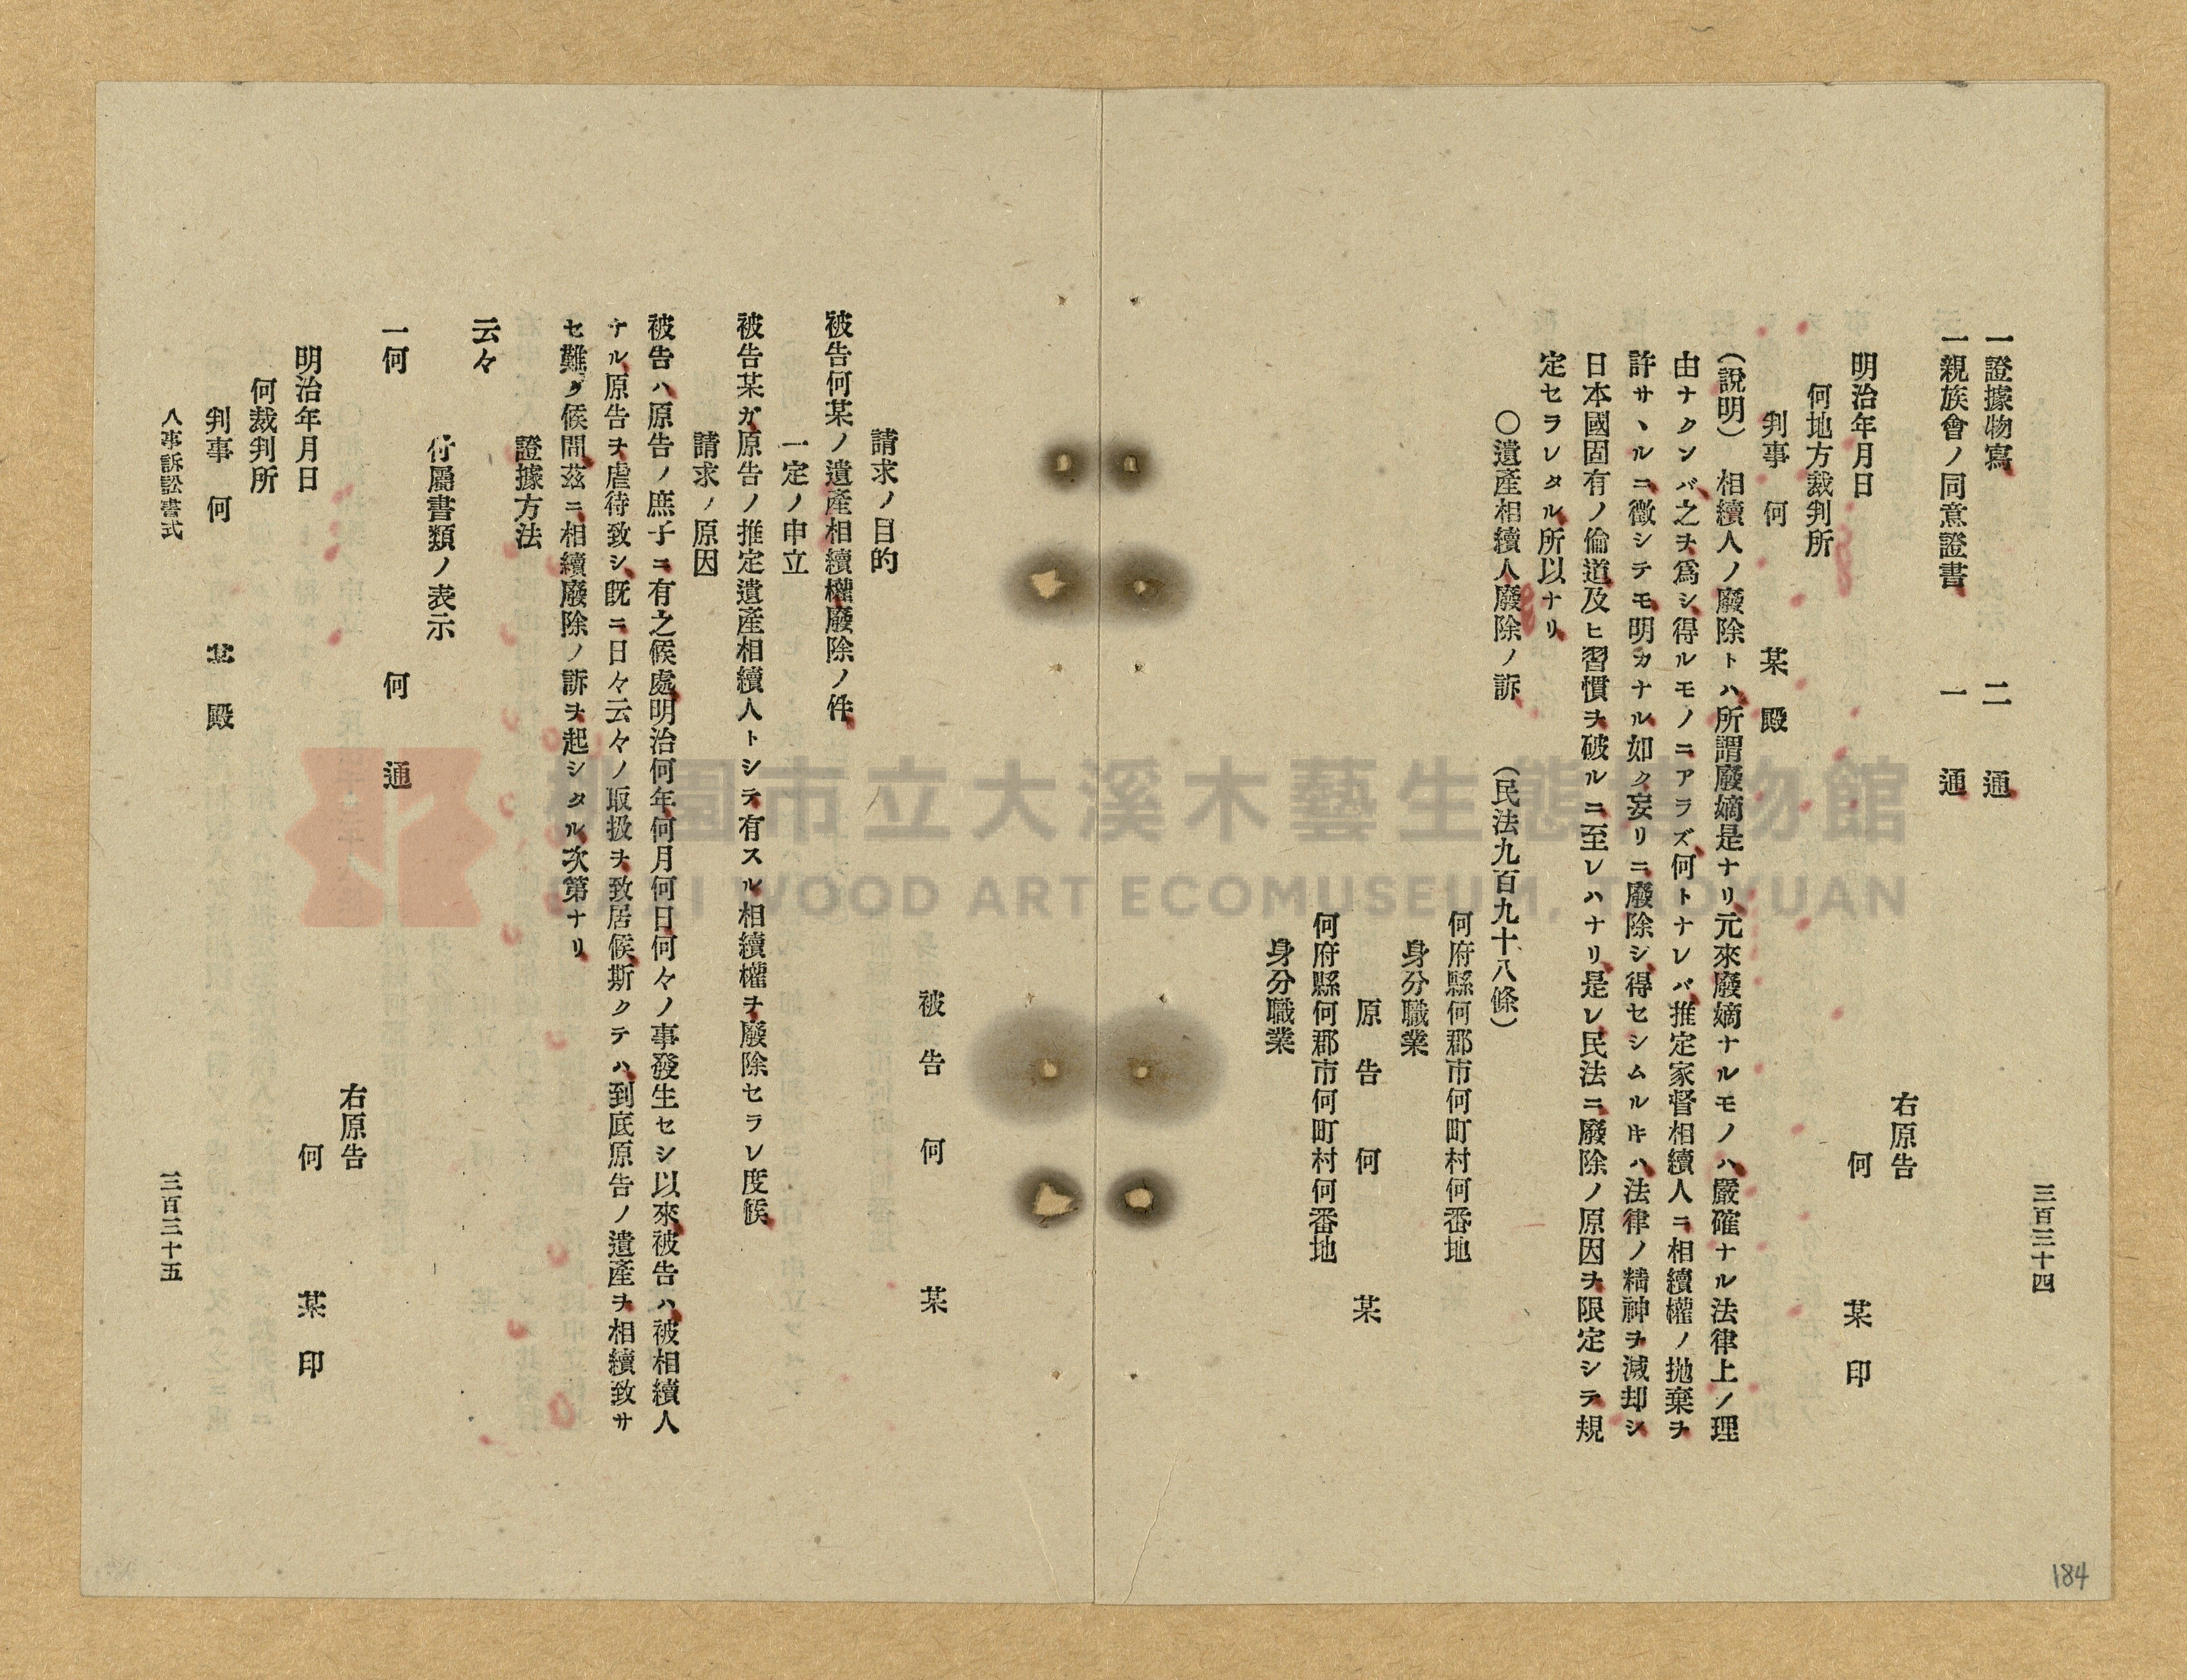 三百三十四
一證據物寫 二通
一親族會ノ同意證書 一通
右原告
明治年月日 何某印
何地方裁判所
判事 何某殿
(說明) 相續人ノ廢除トハ所謂廢嫡是ナリ元來廢嫡ナルモノハ嚴確ナル法律上ノ理
由ナクンバ之ヲ爲シ得ルモノニアラズ何トナレバ推定家督相續人ニ相續權ノ拋棄ヲ
許サヽルニ徵シテモ明カナル如ク妄リニ廢除シ得セシムルキハ法律ノ精神ヲ減却シ
日本國固有ノ倫道及ヒ習慣ヲ破ルニ至レハナリ是レ民法ニ廢除ノ原因ヲ限定シテ規
定セラレタル所以ナリ
〇遺產相續人廢除ノ訴 (民法九百九十八條)
何府縣何郡市何町村何番地
身分職業
原告 何某
何府縣何郡市何町村何番地
身分職業
被告 何某
請求ノ目的
被告何某ノ遺產相續權廢除ノ件
一定ノ申立
被告某ガ原告ノ推定遺產相續人トシテ有スル相續權ヲ廢除セラレ度候
請求ノ原因
被告ハ原告ノ庶子ニ有之候處明治何年何月何日何々ノ事發生セシ以來被告ハ被相續人
ナル原告ヲ虐待致シ既ニ日々云々ノ取扱ヲ致居候斯クテハ到底原告ノ遺產ヲ相續致サ
セ難ク候間茲ニ相續廢除ノ訴ヲ起シタル次第ナリ
證據方法
云々
付屬書類ノ表示
一何 何通
右原告
明治年月日 何某印
何裁判所
判事 何某殿
人事訴訟書式 三百三十五
184
桃園市立大溪木藝生態博物館
DAXI WOOD ART ECOMUSEUM, TAOYUAN